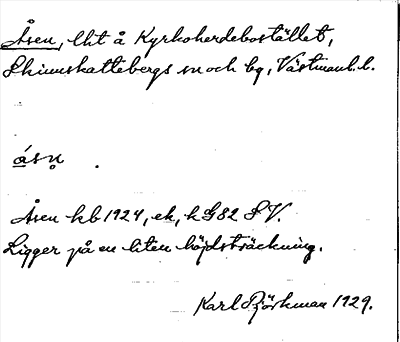 Åsen, lht å Kyrkoherdebostället,
Skinnskattebergs sn och bg, Västmanl. l.
åsṇ
Åsen hb 1924, ek, k G82 SV.
Ligger på en liten höjdsträckning.
Karl Björkman 1929.